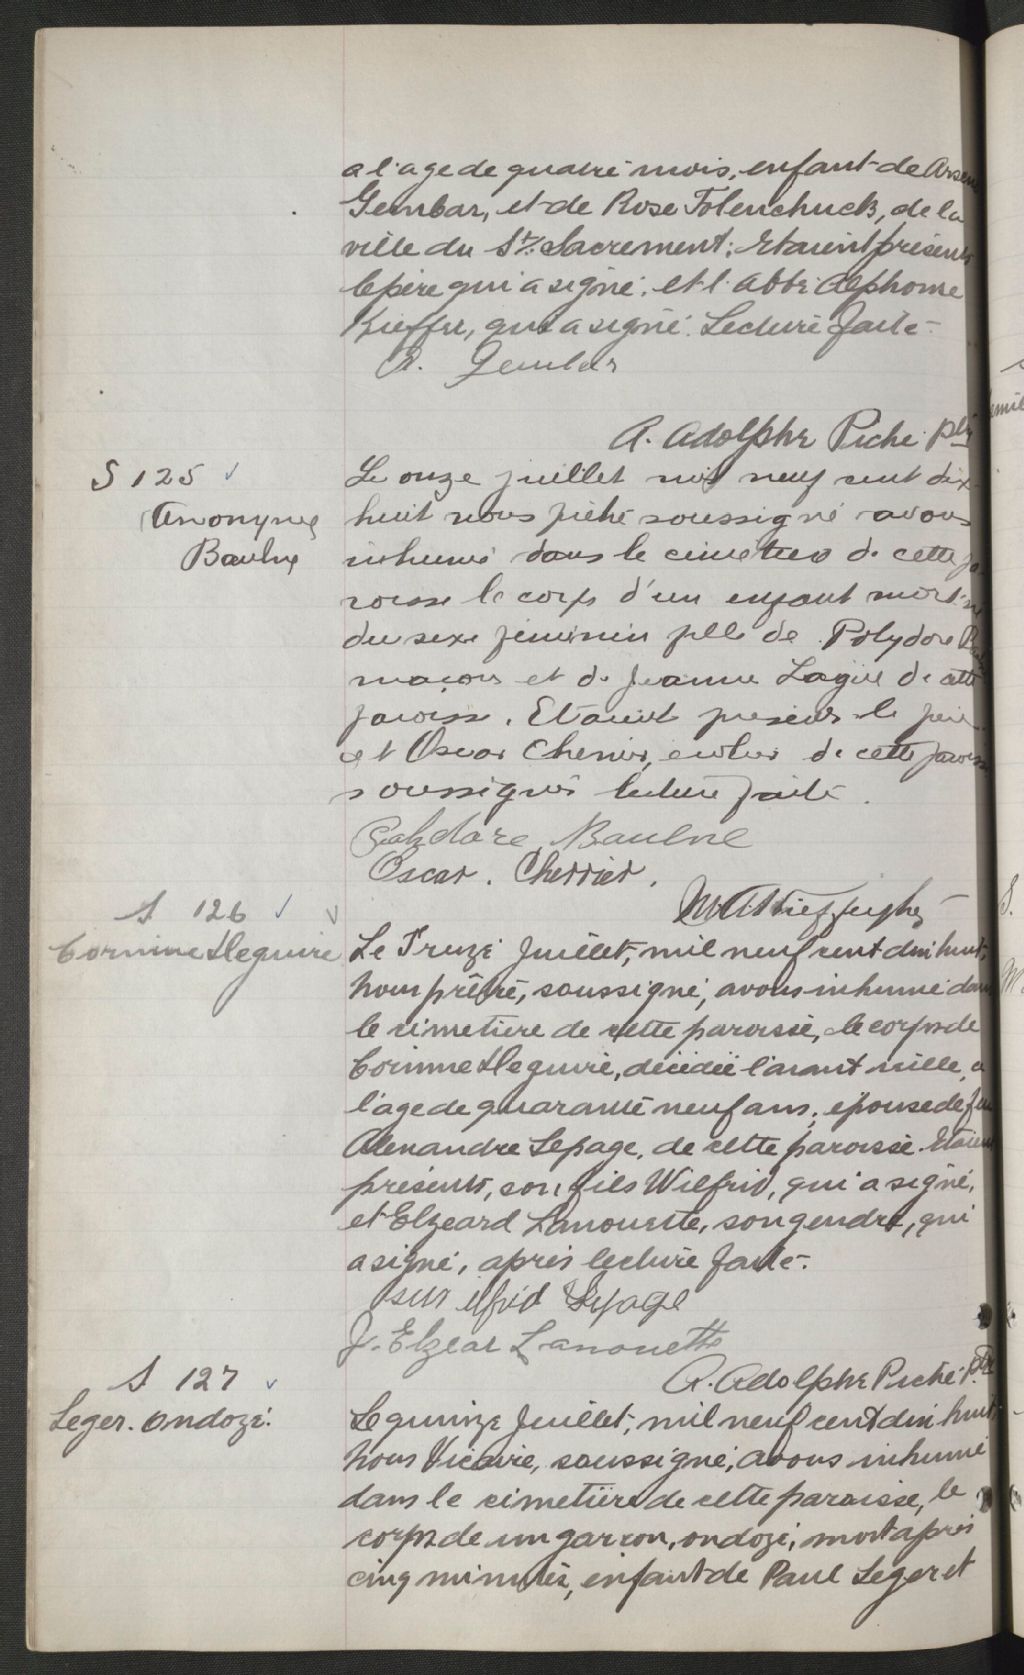 a l'age de quatre mois, enfant de Arsene
Gembar, et de Rose Tolenchuck, de la
ville du St. Sacrement: Etaient présents
le père qui a signé. et l'abbé Alphonse
Kieffer, qui a signé. Lecture faite.
A. Gembar
A. Adolphe Piché ptre
S 125
Anonyme
Baulne
Le onze juillet mil neuf cent dix
huit nous prêtre soussigné avons
inhumé dans le cimetière de cette pa
roisse le corps d'un enfant mort-né
du sexe féminin fille de Polydore
maçon et de Jeanne Lagüe de cette
paroisse. Etaient présents le père
et Oscar Cherrier, de cette paroisse
soussignés lecture faite.
Baulne
Oscar. Cherrier.
S 126
Corinne Seguire
Le Treize Juillet, mil neuf cent dix huit,
Nous prêtre, soussigné, avons inhumé dans
le cimetière de cette paroisse, le corps de
Corinne Seguire, décédée l'avant veille, a
l'age de quarante neuf ans, épouse de feu
Alexandre Lepage, de cette paroisse. Etaient
présents, son fils Wilfrid, qui a signé,
et Elzeard Lanouette, son gendre, qui
a signé, après lecture faite.
Lepage
J. Elzear Lanouette
A. Adolphe Piché ptre
S 127
Leger. Ondozé.
Le quinze Juillet, mil neuf cent dix huit,
Nous Vicaire, soussigné, avons inhumé
dans le cimetière de cette paroisse, le
corps de un garcon, ondozé, mort après
cinq minutes, enfant de Paul Leger et